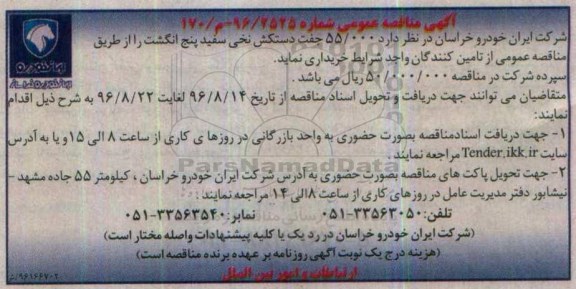 آگهی مناقصه عمومی شماره ۹۶/۷۵۲۵-م/۱۷۰
شرکت ایران خودرو خراسان در نظر دارد ۵۵/۰۰۰ جفت دستکش نخی سفید پنج انگشت را از طریق
مناقصه عمومی از تامین کنندگان واجد شرایط خریداری نماید.
سپرده شرکت در مناقصه ۵۰/۰۰۰/۰۰۰ ریال می باشد.
متقاضیان می توانند جهت دریافت و تحویل اسناد مناقصه از تاریخ ۹۶/۸/۱۴ لغایت ۹۶/۸/۲۲ به شرح ذیل اقدام
نمایند:
۱- جهت دریافت اسنادمناقصه بصورت حضوری به واحد بازرگانی در روزها ی کاری از ساعت ۸ الی ۱۵ و یا به آدرس
سایت Tender.ikk.ir مراجعه نمایند.
۲- جهت تحویل پاکت های مناقصه بصورت حضوری به آدرس شرکت ایران خودرو خراسان ، کیلومتر ۵۵ جاده مشهد -
نیشابور دفتر مدیریت عامل در روزهای کاری از ساعت ۸ الی ۱۴ مراجعه نمایند:
تلفن: ۳۳۵۶۳۰۵۰-۰۵۱ نمابر: ۳۳۵۶۳۵۴۰-۰۵۱
(شرکت ایران خودرو خراسان در رد یک یا کلیه پیشنهادات واصله مختار است)
(هزینه درج یک نوبت آگهی روزنامه بر عهده برنده مناقصه است)
ارتباطات و امور بین الملل
ParsNamadData